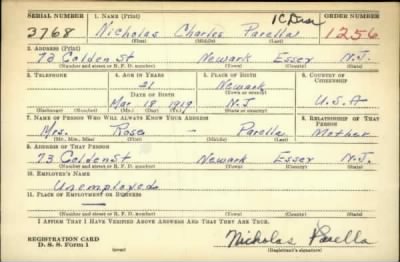 SERIAL NUMBER 1. NAME (Print) ORDER NUMBER
3768 Nicholas Charles Parella 1256
(First) (Middle) (Last)
2. ADDRESS (Print)
73 Colden St Newark Essex N.J.
(Number and street or R. F. D. number) (Town) (County) (State)
3. TELEPHONE 4. AGE IN YEARS 5. PLACE OF BIRTH 6. COUNTRY OF CITIZENSHIP
21 Newark
DATE OF BIRTH (Town or county)
Mar 18 1919 N.J. U.S.A
(Exchange) (Number) (Mo.) (Day) (Yr.) (State or country)
7. NAME OF PERSON WHO WILL ALWAYS KNOW YOUR ADDRESS 8. RELATIONSHIP OF THAT PERSON
Mrs. Rose — Parella Mother
(Mr., Mrs., Miss) (First) (Middle) (Last)
9. ADDRESS OF THAT PERSON
73 Colden St Newark Essex N.J.
(Number and street or R. F. D. number) (Town) (County) (State)
10. EMPLOYER'S NAME
Unemployed
11. PLACE OF EMPLOYMENT OR BUSINESS
—
(Number and street or R. F. D. number) (Town) (County) (State)
I AFFIRM THAT I HAVE VERIFIED ABOVE ANSWERS AND THAT THEY ARE TRUE.
REGISTRATION CARD
D. S. S. Form 1 (over) Nicholas Parella
(Registrant's signature)